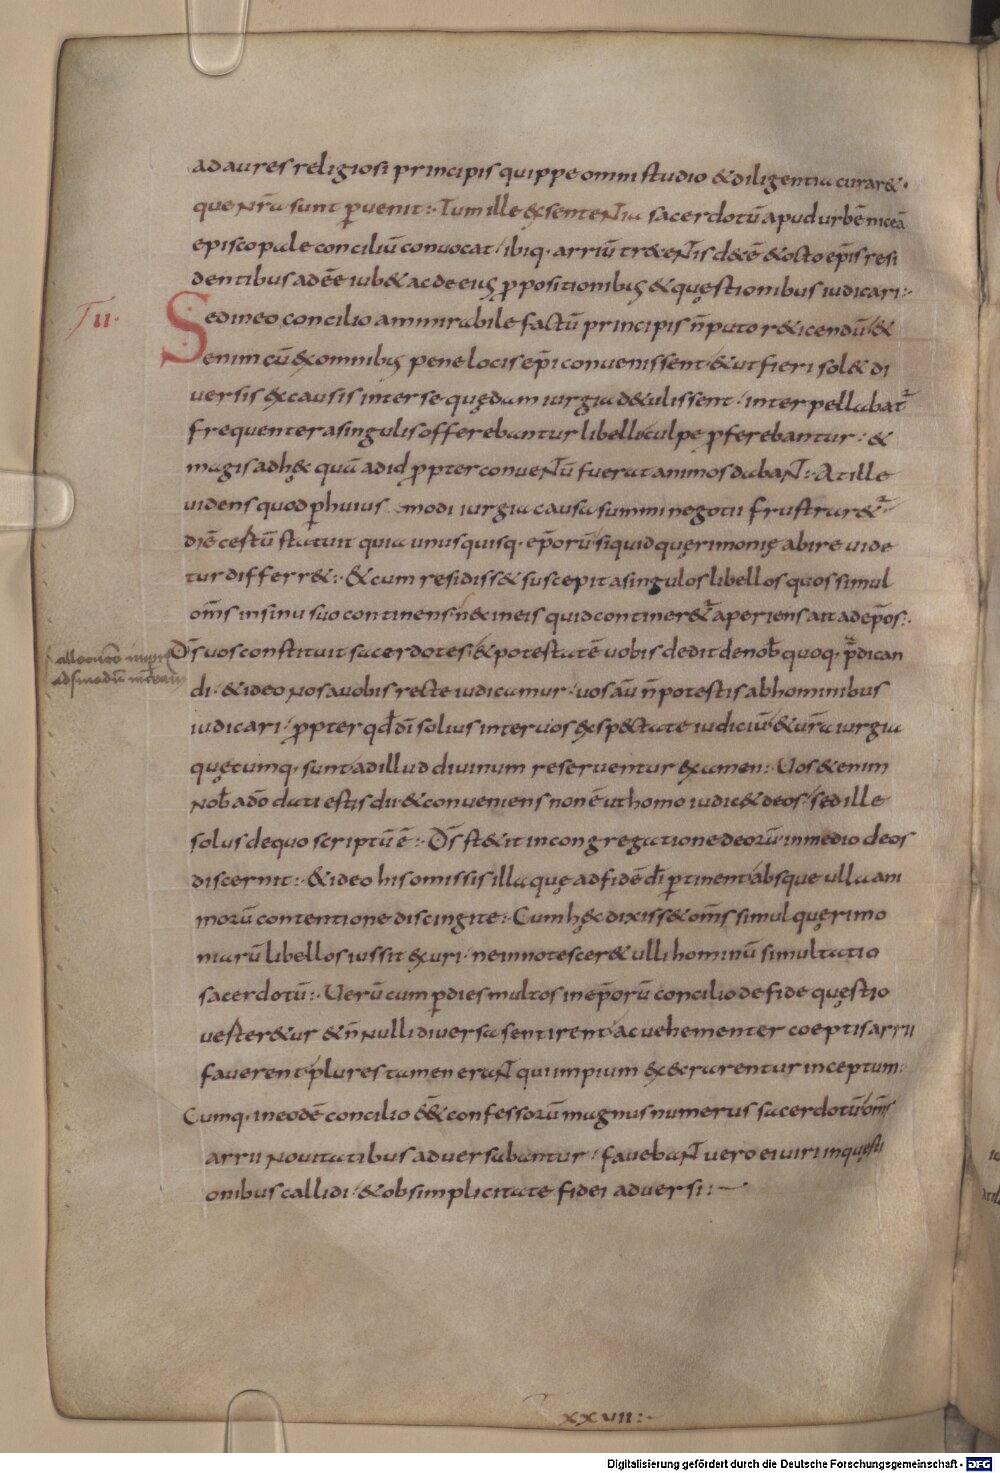 ad aures religiosi principis quippe omni studio & diligentia curar&·
que nr̄a sunt ꝑuenit:· Tum ille ex sententia sacerdotū apud urbē niceā
episcopale conciliū conuocat· ibiq· arriū tr&entis dece & octo ep̄is resi
dentibus adēe iub& ac de eiꝰ ꝓpositionibꝰ & quęstionibus iudicari:·
Tu II·
Sed in eo concilio ammirabile factū principis n̄ puto reticendū· &
enim cū ex omnibꝰ pene locis ep̄i conuenissent· & ut fieri sol& di
uersis ex causis inter se quędam iurgia d&ulissent· interpellabat᷑
frequenter a singulis offerebantur libelli culpe ꝓferebantur· &
magis ad hęc quā ad id ꝓpter conuentū fuerat animos dabant:· At ille
uidens quod ꝑ huiusmodi iurgia causa summi negotii frustrar&᷑
diē cestū statuit quia unusquisq· ep̄orū siquid quęrimonię abire uide
tur differr&:· & cum residiss& suscepit a singulos libellos quos simul
om̄s in sinu suo continens n& in eis quid continer&᷑ aperiens ait ad ep̄os:·
D̄s uos constituit sacerdotes· & potestatē uobis dedit de nob̄ quoq· p̄dican
di· & ideo nos a uobis recte iudicamur· uos aū n̄ potestis ab hominibus
iudicari· ꝓpter qđ dī solius inter uos expectate iudiciū· & ur̄a iurgia
quęcumq· sunt ad illud diuinum reseruentur examen:· Uos &enim
nob̄ a dō dati estis dii· & conueniens non ē ut homo iudic& deos· sed ille
solus de quo scriptū ē:· D̄s st&it in congregatione deorū in medio deos
discernit:· & ideo his omissis illa quę ad fidē dī ꝑtinent absque ulla ani
morū contentione discingite:· Cum hęc dixiss& om̄s simul quęrimo
niarū libellos iussit exuri· ne innotescer& ulli hominū simultatio
sacerdotū:· Uerū cum ꝑ dies multos in ep̄orū concilio de fide quęstio
uester&ur & n̄nulli diuersa sentirent· ac uehementer coeptis arrii
fauerent· plures tamen erant qui impium execrarentur inceptum:
Cumq· in eodē concilio ēē& confessorū magnus numerus sacerdotū· om̄s
arrii nouitatibus aduersabantur· fauebant uero ei uiri in quęsti
onibus callidi· & ob simplicitate fidei aduersi:·
XXVII:·
Digitalisierung gefördert durch die Deutsche Forschungsgemeinschaft - DFG